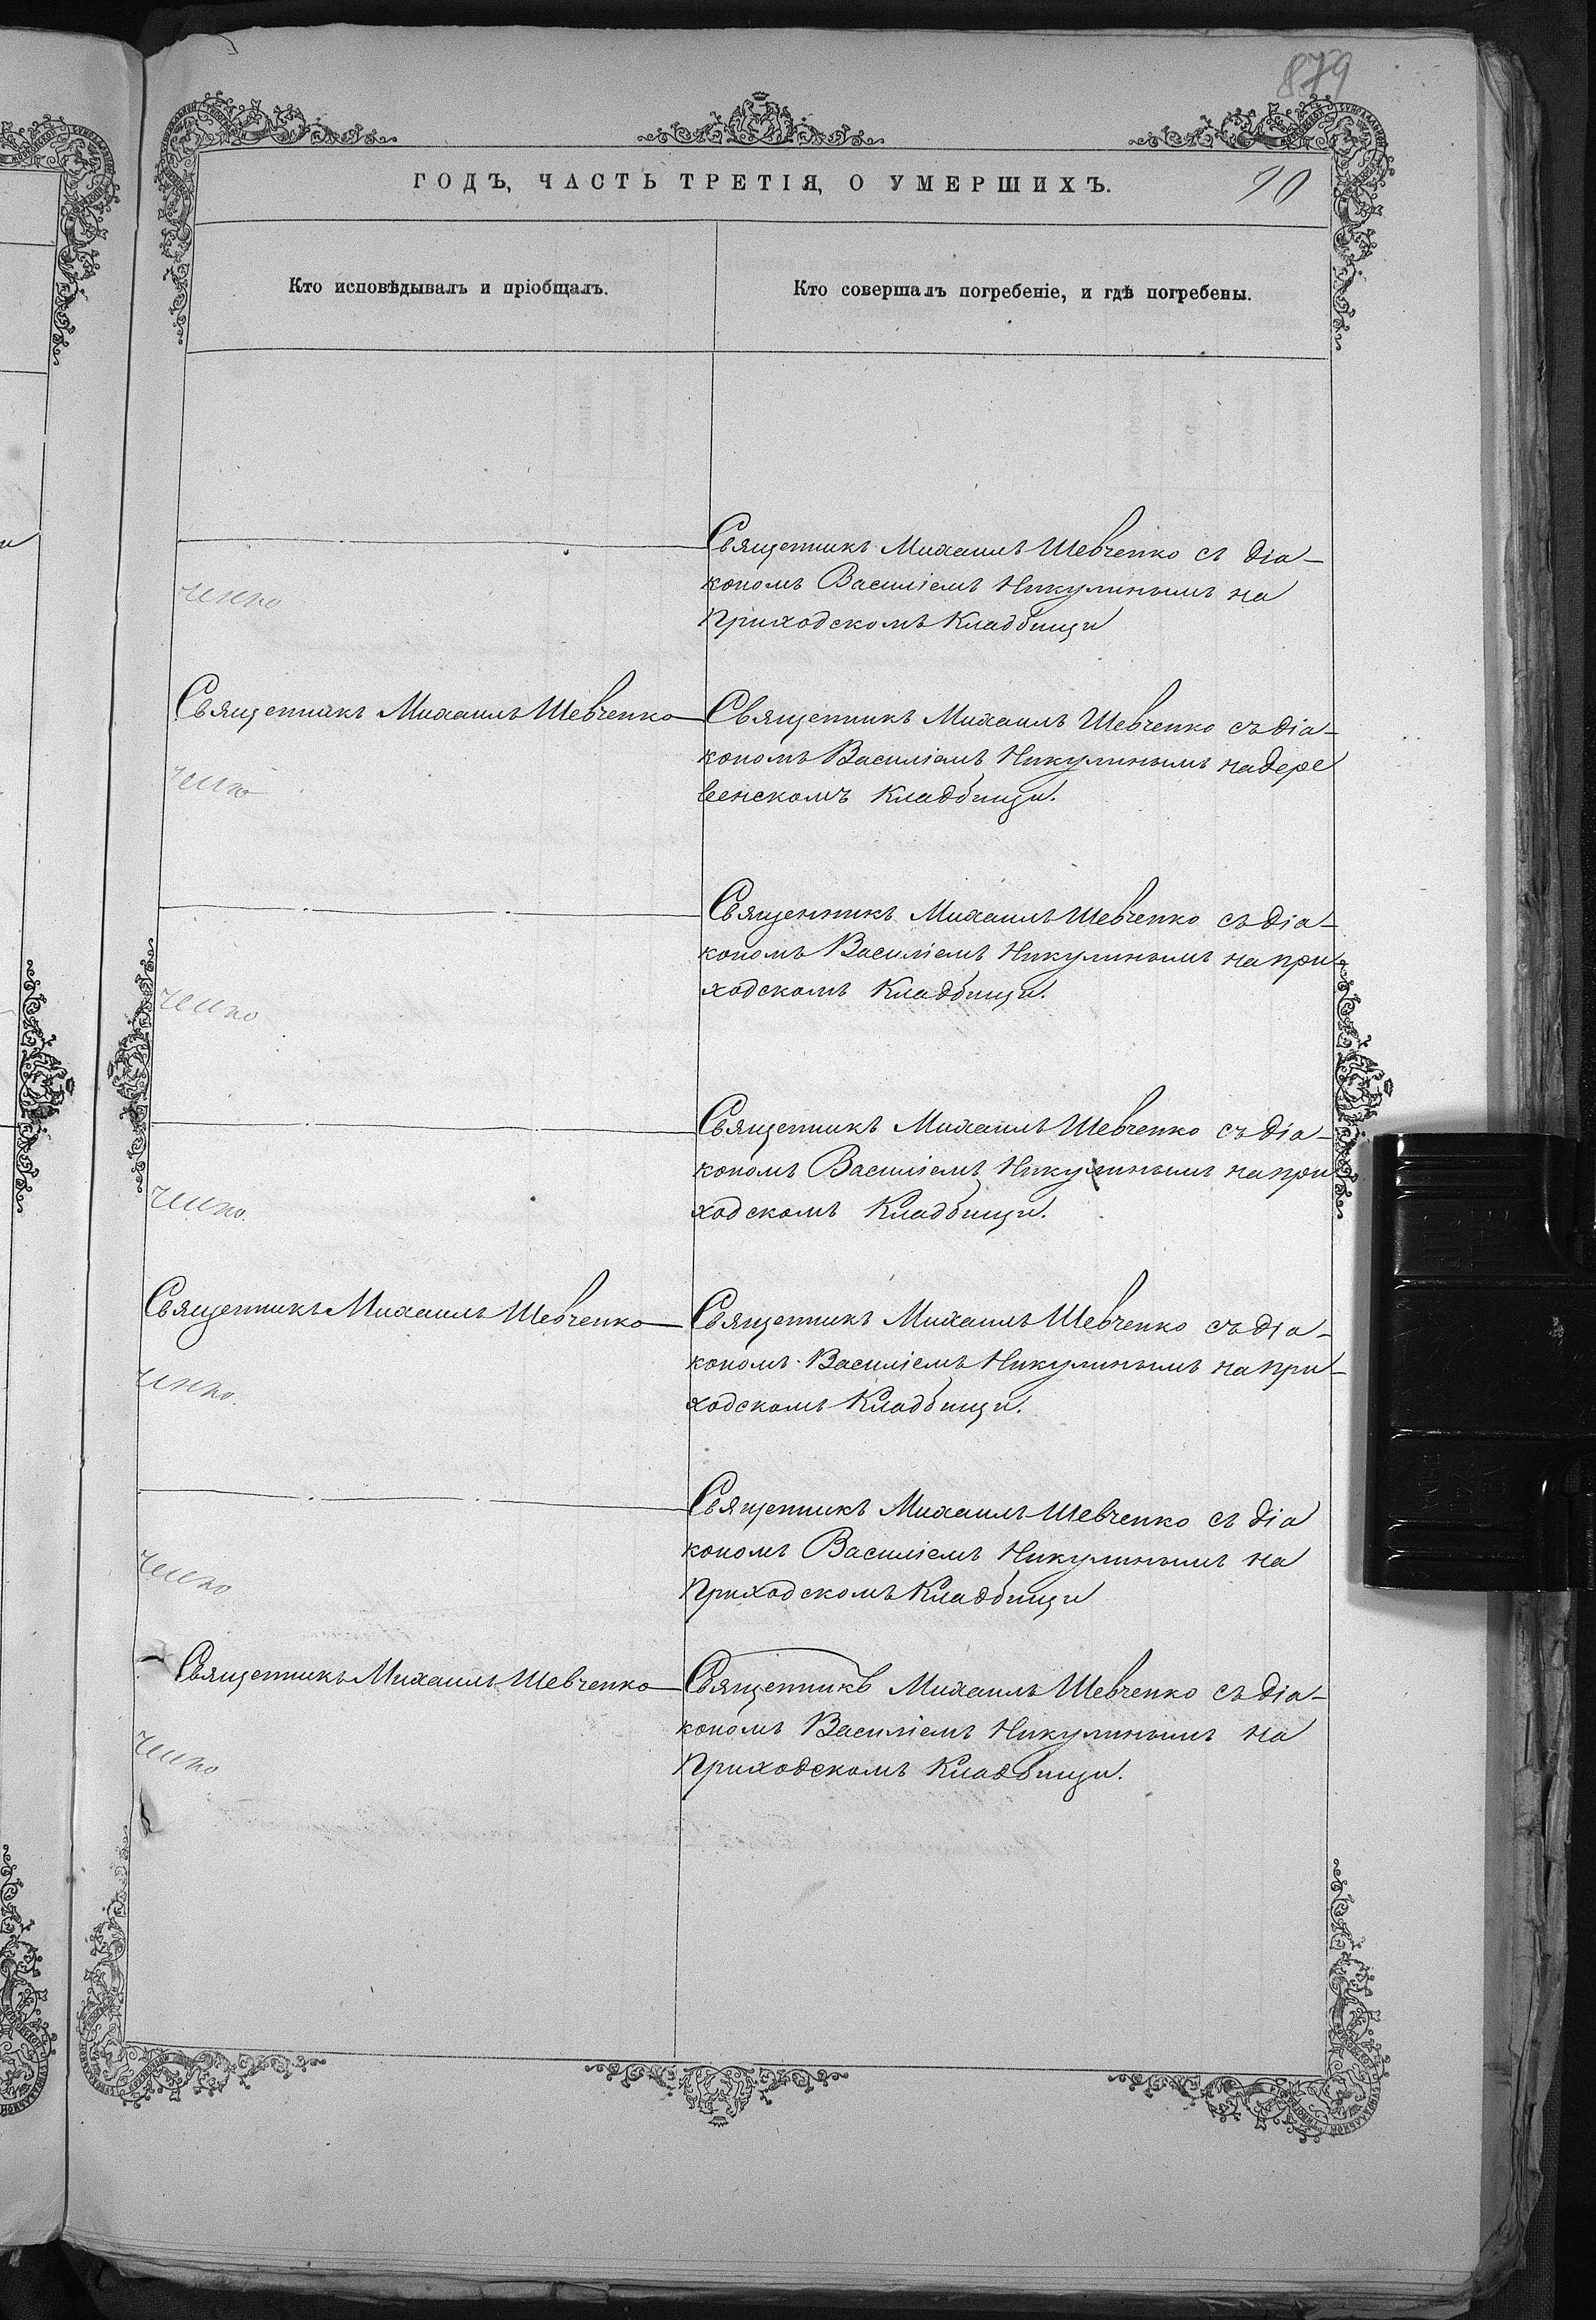 879
ГОДЪ, ЧАСТЬ ТРЕТІЯ, О УМЕРШИХЪ.
90
Кто исповѣдывалъ и пріобщалъ.
Кто совершалъ погребеніе, и гдѣ погребены.
Священникъ Михаилъ Шевченко съ діа-
кономъ Василіемъ Никулинымъ на
Приходскомъ Кладбищи
Священникъ Михаилъ Шевченко
Священникъ Михаилъ Шевченко съ діа-
кономъ Василіемъ Никулинымъ на дере
венскомъ Кладбищи.
Священникъ Михаилъ Шевченко съ діа-
кономъ Василіемъ Никулинымъ на при
ходскомъ Кладбищи.
Священникъ Михаилъ Шевченко съ діа-
кономъ Василіемъ Никулинымъ на при
ходскомъ Кладбищи.
Священникъ Михаилъ Шевченко
Священникъ Михаилъ Шевченко съ діа-
кономъ Василіемъ Никулинымъ на при-
ходскомъ Кладбищи.
Священникъ Михаилъ Шевченко съ діа
кономъ Василіемъ Никулинымъ на
Приходскомъ Кладбищи
Священникъ Михаилъ Шевченко
Священникъ Михаилъ Шевченко съ діа-
кономъ Василіемъ Никулинымъ на
Приходскомъ Кладбищи.